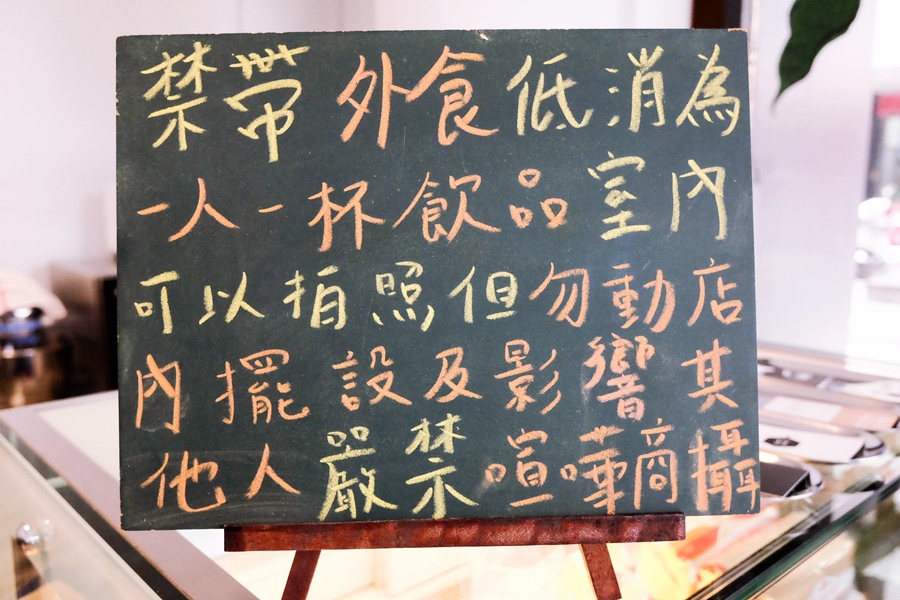 禁帶外食低消為
一人一杯飲品室內
可以拍照但勿動店
內擺設及影響其
他人嚴禁喧嘩商攝